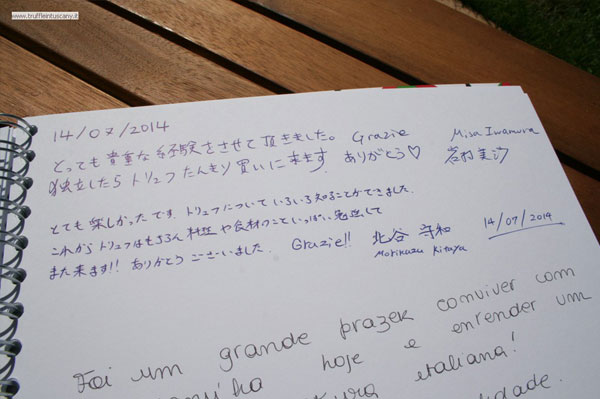 www.truffleintuscany.it
14/07/2014
とっても貴重な経験をさせて頂きました。 Grazie Misa Iwamura
独立したらトリュフたんまり買いに来ます。ありがとう♡ 岩村美沙
とても楽しかったです。トリュフについていろいろ知ることができました。
これからトリュフはもちろん料理や食材のこといっぱい勉強して
また来ます!! ありがとうございました。 Grazie!! 北谷 守和 14/07/2014
Morikazu Kitaya
Foi um grande prazer conviver com
hoje e entender um
italiana!